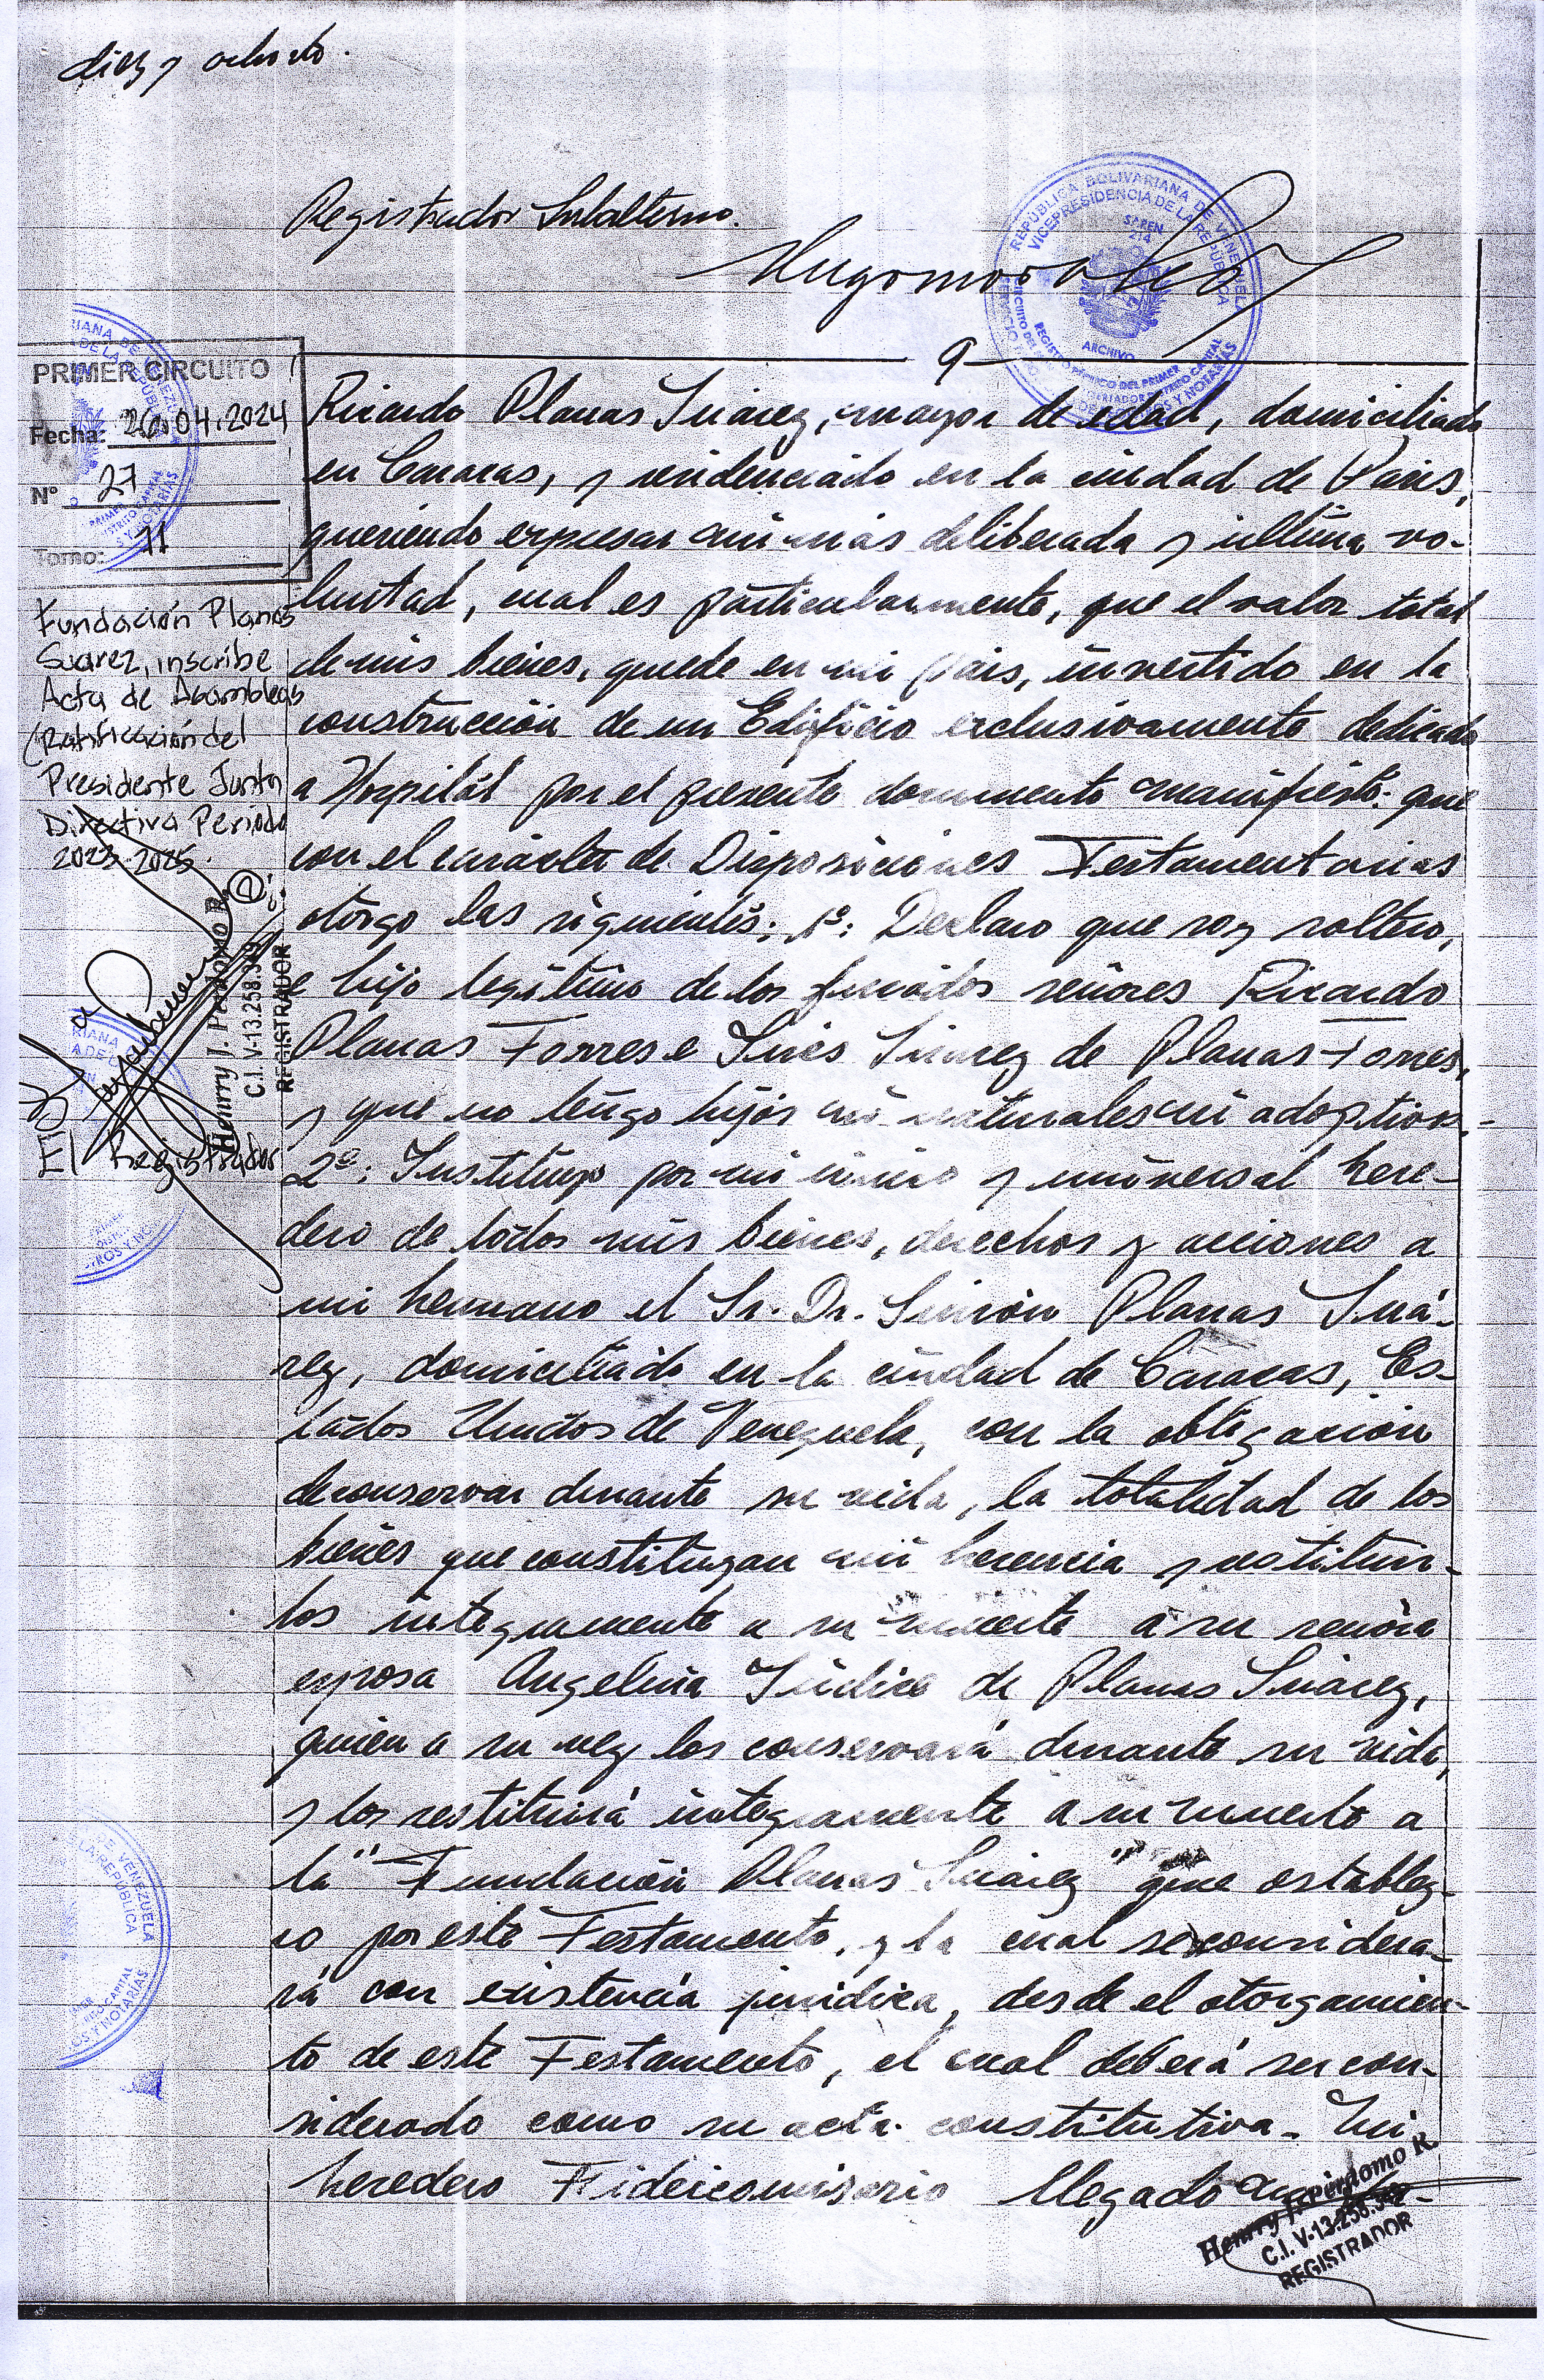 diez y ocho
Registrador Subalterno.
Hugo
9
REPÚBLICA BOLIVARIANA DE VENEZUELA
VICEPRESIDENCIA DE LA REPÚBLICA
SAREN
214
ARCHIVO
REGISTRO PÚBLICO DEL PRIMER
PRIMER CIRCUITO
Fecha: 26.04.2024
Nº 27
Tomo: 11
Fundación Planas
Suarez, inscribe
Acta de Asambleas
(Ratificación del
Presidente Junta
Directiva Periodo
2023-2025.
El Registrador
Henrry J. Perdomo R.
C.I. V-13.258.
REGISTRADOR
Ricardo Planas Suárez, mayor de edad, domiciliado
en Caracas, y residenciado en la ciudad de Paris,
queriendo expresar mi más deliberada y última vo-
luntad, cual es particularmente, que el valor total
de mis bienes, quede en mi pais, invertido en la
construcción de un Edificio exclusivamente dedicado
a Hospital por el presente documento manifiesto: que
con el carácter de Disposiciones Testamentarias
otorgo las siguientes: 1º: Declaro que soy soltero,
e hijo legítimo de los finados señores Ricardo
Planas Torres e Inés Suárez de Planas Torres,
y que no tengo hijos ni naturales ni adoptivos.-
2º: Instituyo por mi único y universal here-
dero de todos mis bienes, derechos y acciones a
mi hermano el Sr. Dr. Simón Planas Suá-
rez, domiciliado en la ciudad de Caracas, Es-
tados Unidos de Venezuela, con la obligación
de conservar durante su vida, la totalidad de los
bienes que constituyan mi herencia y restituir-
los integramente a su muerte a su señora
esposa Angelina Síndico de Planas Suárez,
quien a su vez los conservará durante su vida,
y los restituirá integramente a su muerte a
la "Fundación Planas Suárez" que establez-
co por este Testamento, y la cual se considera-
rá con existencia jurídica, desde el otorgamien-
to de este Testamento, el cual deberá ser con-
siderado como su acta constitutiva. Mi
heredero Fideicomisario llegado
Henrry J. Perdomo R.
C.I. V-13.258.
REGISTRADOR